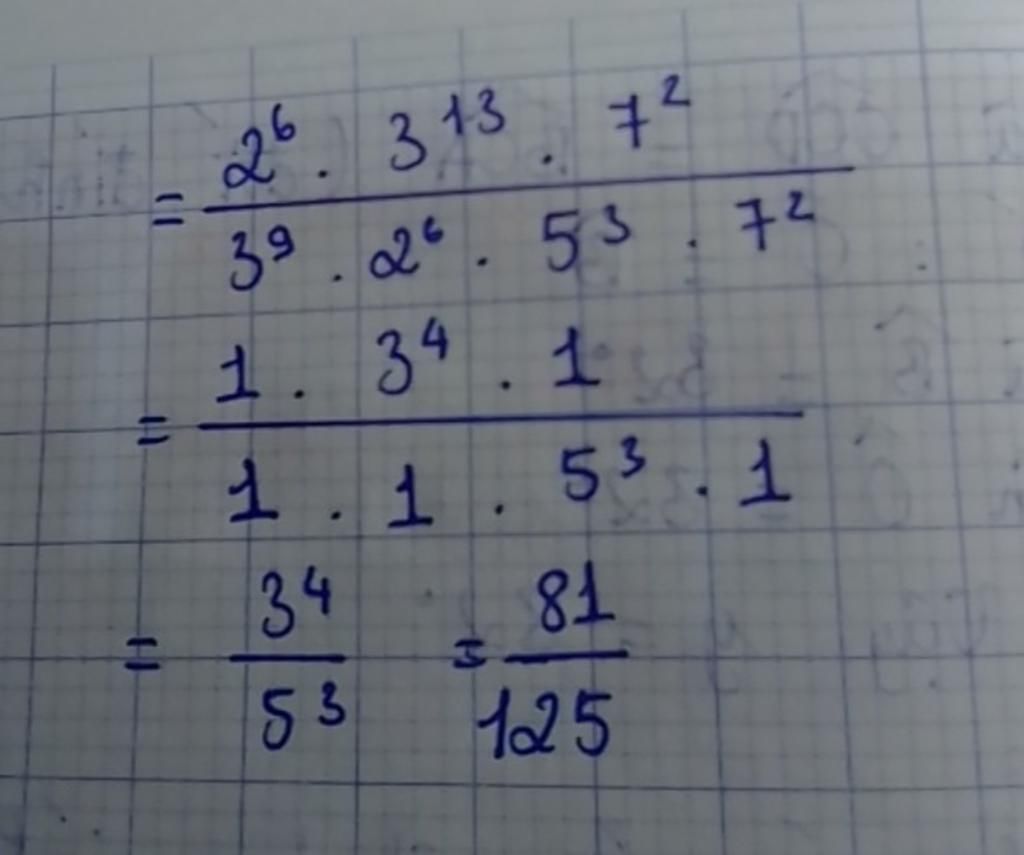 = 2⁶ . 3¹³ . 7² / 3⁹ . 2⁶ . 5³ . 7²
= 1 . 3⁴ . 1 / 1 . 1 . 5³ . 1
= 3⁴ / 5³ = 81 / 125